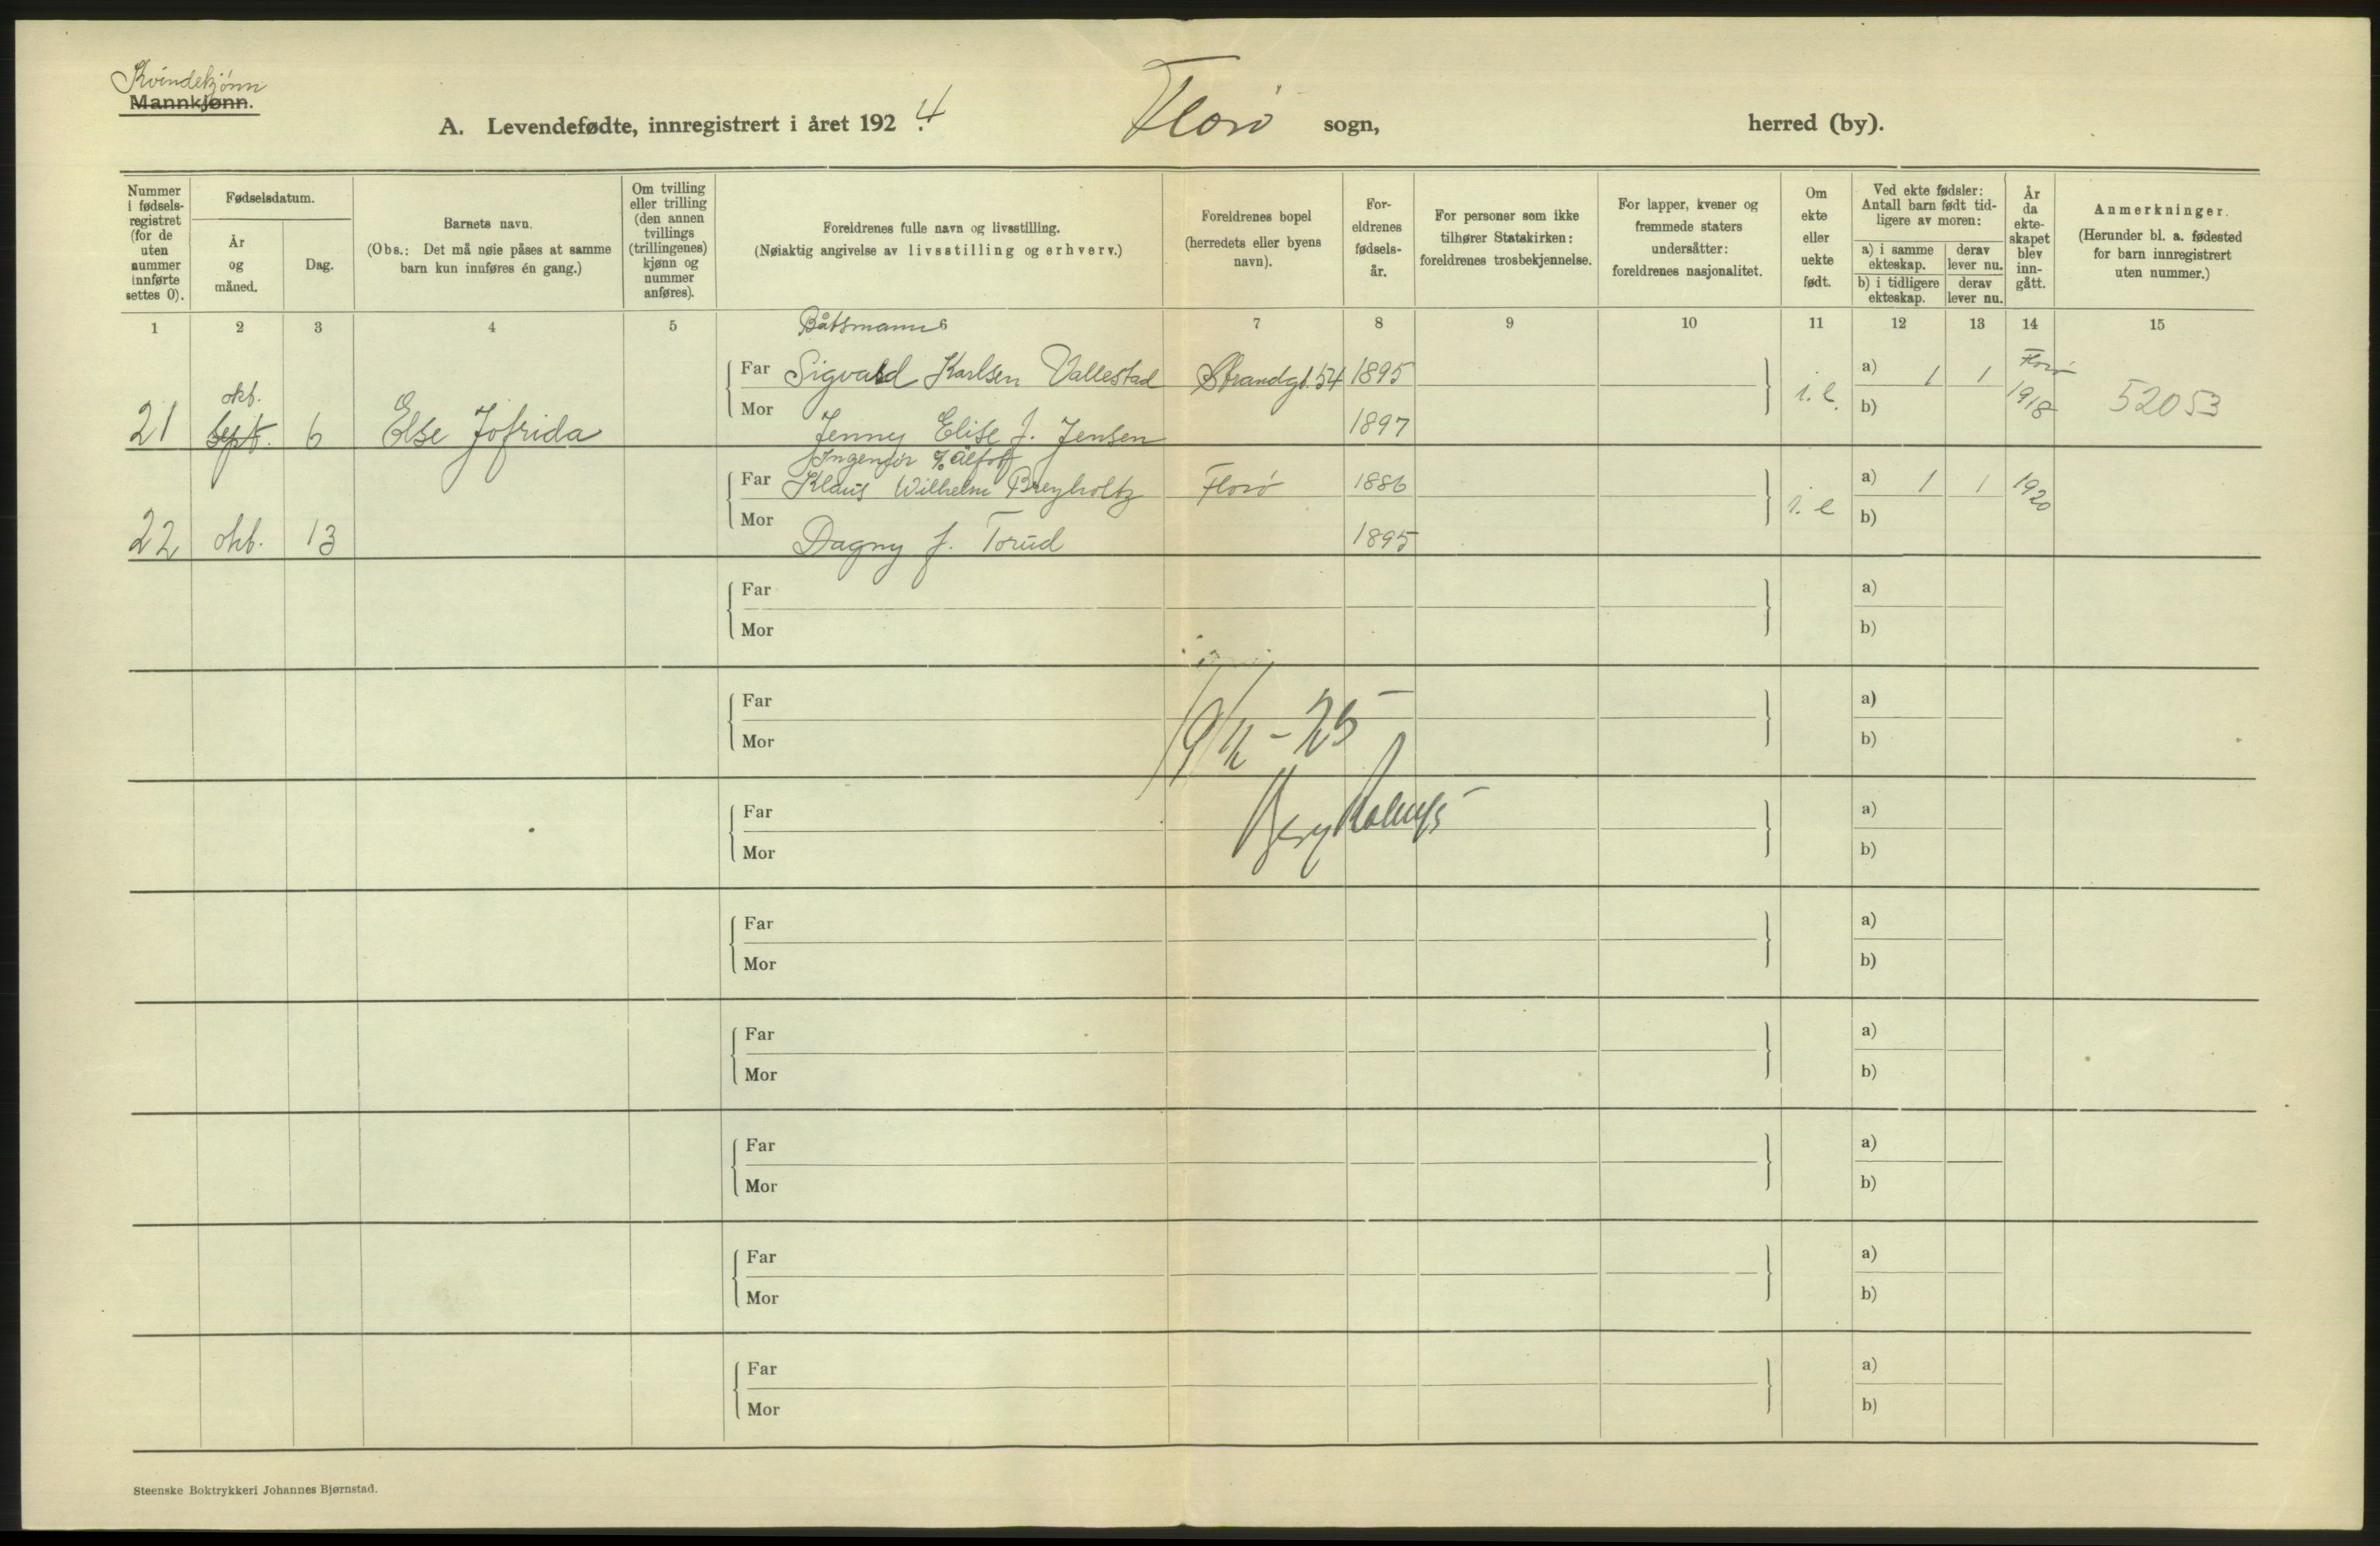 Kvindekjønn
Mannkjønn.
A. Levendefødte, innregistrert i året 1924. Florø sogn, herred (by).
Nummer i fødsels-registret (for de uten nummer innførte settes 0).
Fødselsdatum.
År og måned.
Dag.
Barnets navn.
(Obs.: Det må nøie påses at samme barn kun innføres én gang.)
Om tvilling eller trilling (den annen tvillings (trillingenes) kjønn og nummer anføres).
Foreldrenes fulle navn og livsstilling.
(Nøiaktig angivelse av livsstilling og erhverv.)
Foreldrenes bopel (herredets eller byens navn).
For-eldrenes fødsels-år.
For personer som ikke tilhører Statskirken: foreldrenes trosbekjennelse.
For lapper, kvener og fremmede staters undersåtter: foreldrenes nasjonalitet.
Om ekte eller uekte født.
Ved ekte fødsler: Antall barn født tid-ligere av moren:
a) i samme ekteskap.
derav lever nu.
b) i tidligere ekteskap.
derav lever nu.
År da ekte-skapet blev inn-gått.
Anmerkninger.
(Herunder bl. a. fødested for barn innregistrert uten nummer.)
1 2 3 4 5 6 7 8 9 10 11 12 13 14 15
Båtsmann
Far Sigvald Karlsen Vallestad Strandgt. 54 1895 a) 1 1 Florø
okt. Mor i. e. b) 1918 52053
21 sept. 6 Else Jofrida Jenny Elise J. Jensen 1897
Ingeniør % Ålfot
Far Klaus Wilhelm Breyholtz Florø 1886 a) 1 1 1920
Mor i. e b)
22 okt. 13 Dagny J. Torud 1895
Far a)
Mor b)
Far a)
19/2 - 25
Mor b)
Far a)
Mor b)
Far a)
Mor b)
Far a)
Mor b)
Far a)
Mor b)
Far a)
Mor b)
Far a)
Mor b)
Steenske Boktrykkeri Johannes Bjørnstad.